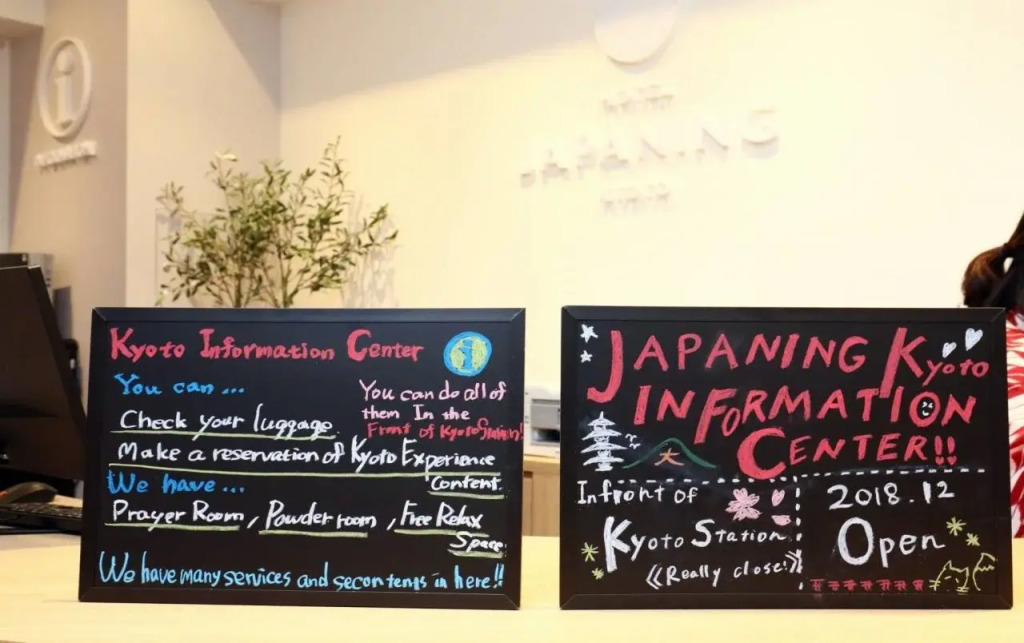 JAPANING
Kyoto Information Center
i
You can ...
Check your luggage
You can do all of
them In the
Front of Kyoto Station!
Make a reservation of Kyoto Experience
content.
We have ...
Prayer Room, Powder room, Free Relax
Space
We have many services and
in here!!
JAPANING Kyoto
INFORMATION
CENTER!!
大
Infront of
Kyoto Station
《Really close!》
2018.12
Open